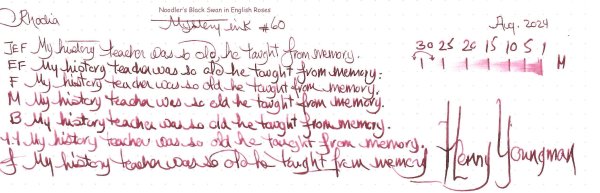 Noodler's Black Swan in English Roses
Rhodia Mystery ink #60 Aug. 2024
JEF My history teacher was so old, he taught from memory.
EF My history teacher was so old he taught from memory.
F My history teacher was so old he taught from memory.
M My history teacher was so old, he taught from memory.
B My history teacher was so old he taught from memory.
1.1 My history teacher was so old he taught from memory.
J My history teacher was so old he taught from memory
30 25 20 15 10 5 1
M
Henny Youngman